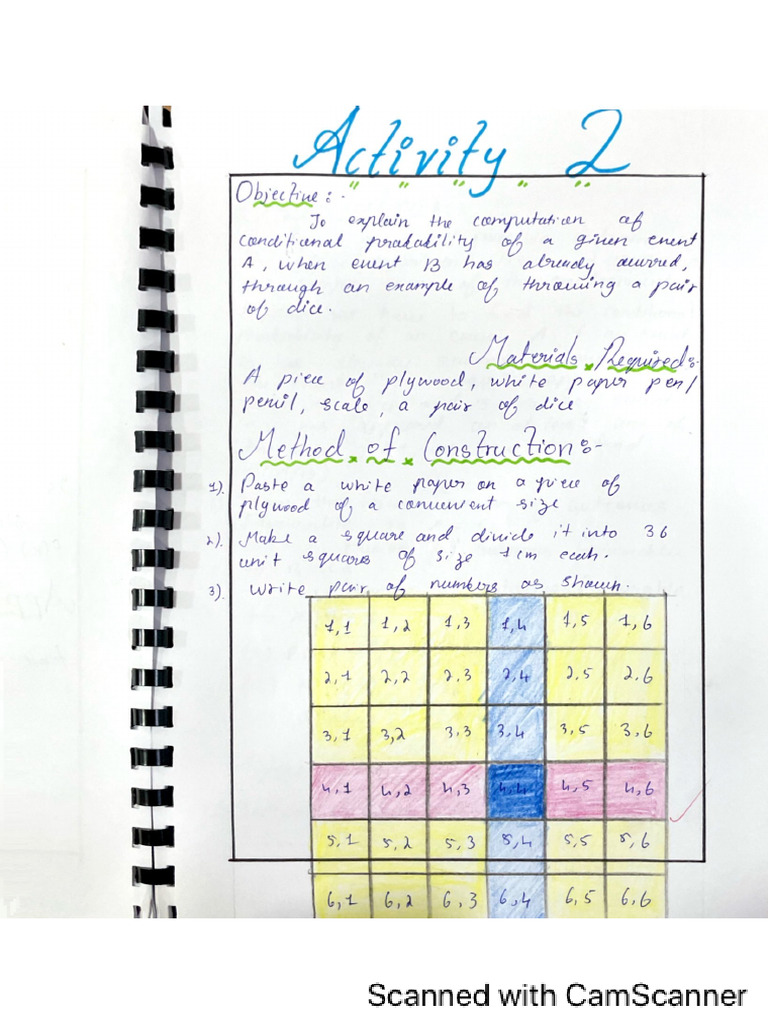 Activity 2
Objective :-
To explain the computation of
conditional probability of a given event
A, when event B has already occurred,
through an example of throwing a pair
of dice.
Materials Required:-
A piece of plywood, white paper pen/
pencil, scale, a pair of dice
Method of Construction:-
1). Paste a white paper on a piece of
plywood of a convenient size
2). Make a square and divide it into 36
unit squares of size 1cm each.
3). Write pair of numbers as shown.
1,1 1,2 1,3 1,4 1,5 1,6
2,1 2,2 2,3 2,4 2,5 2,6
3,1 3,2 3,3 3,4 3,5 3,6
4,1 4,2 4,3 4,4 4,5 4,6
5,1 5,2 5,3 5,4 5,5 5,6
6,1 6,2 6,3 6,4 6,5 6,6
Scanned with CamScanner